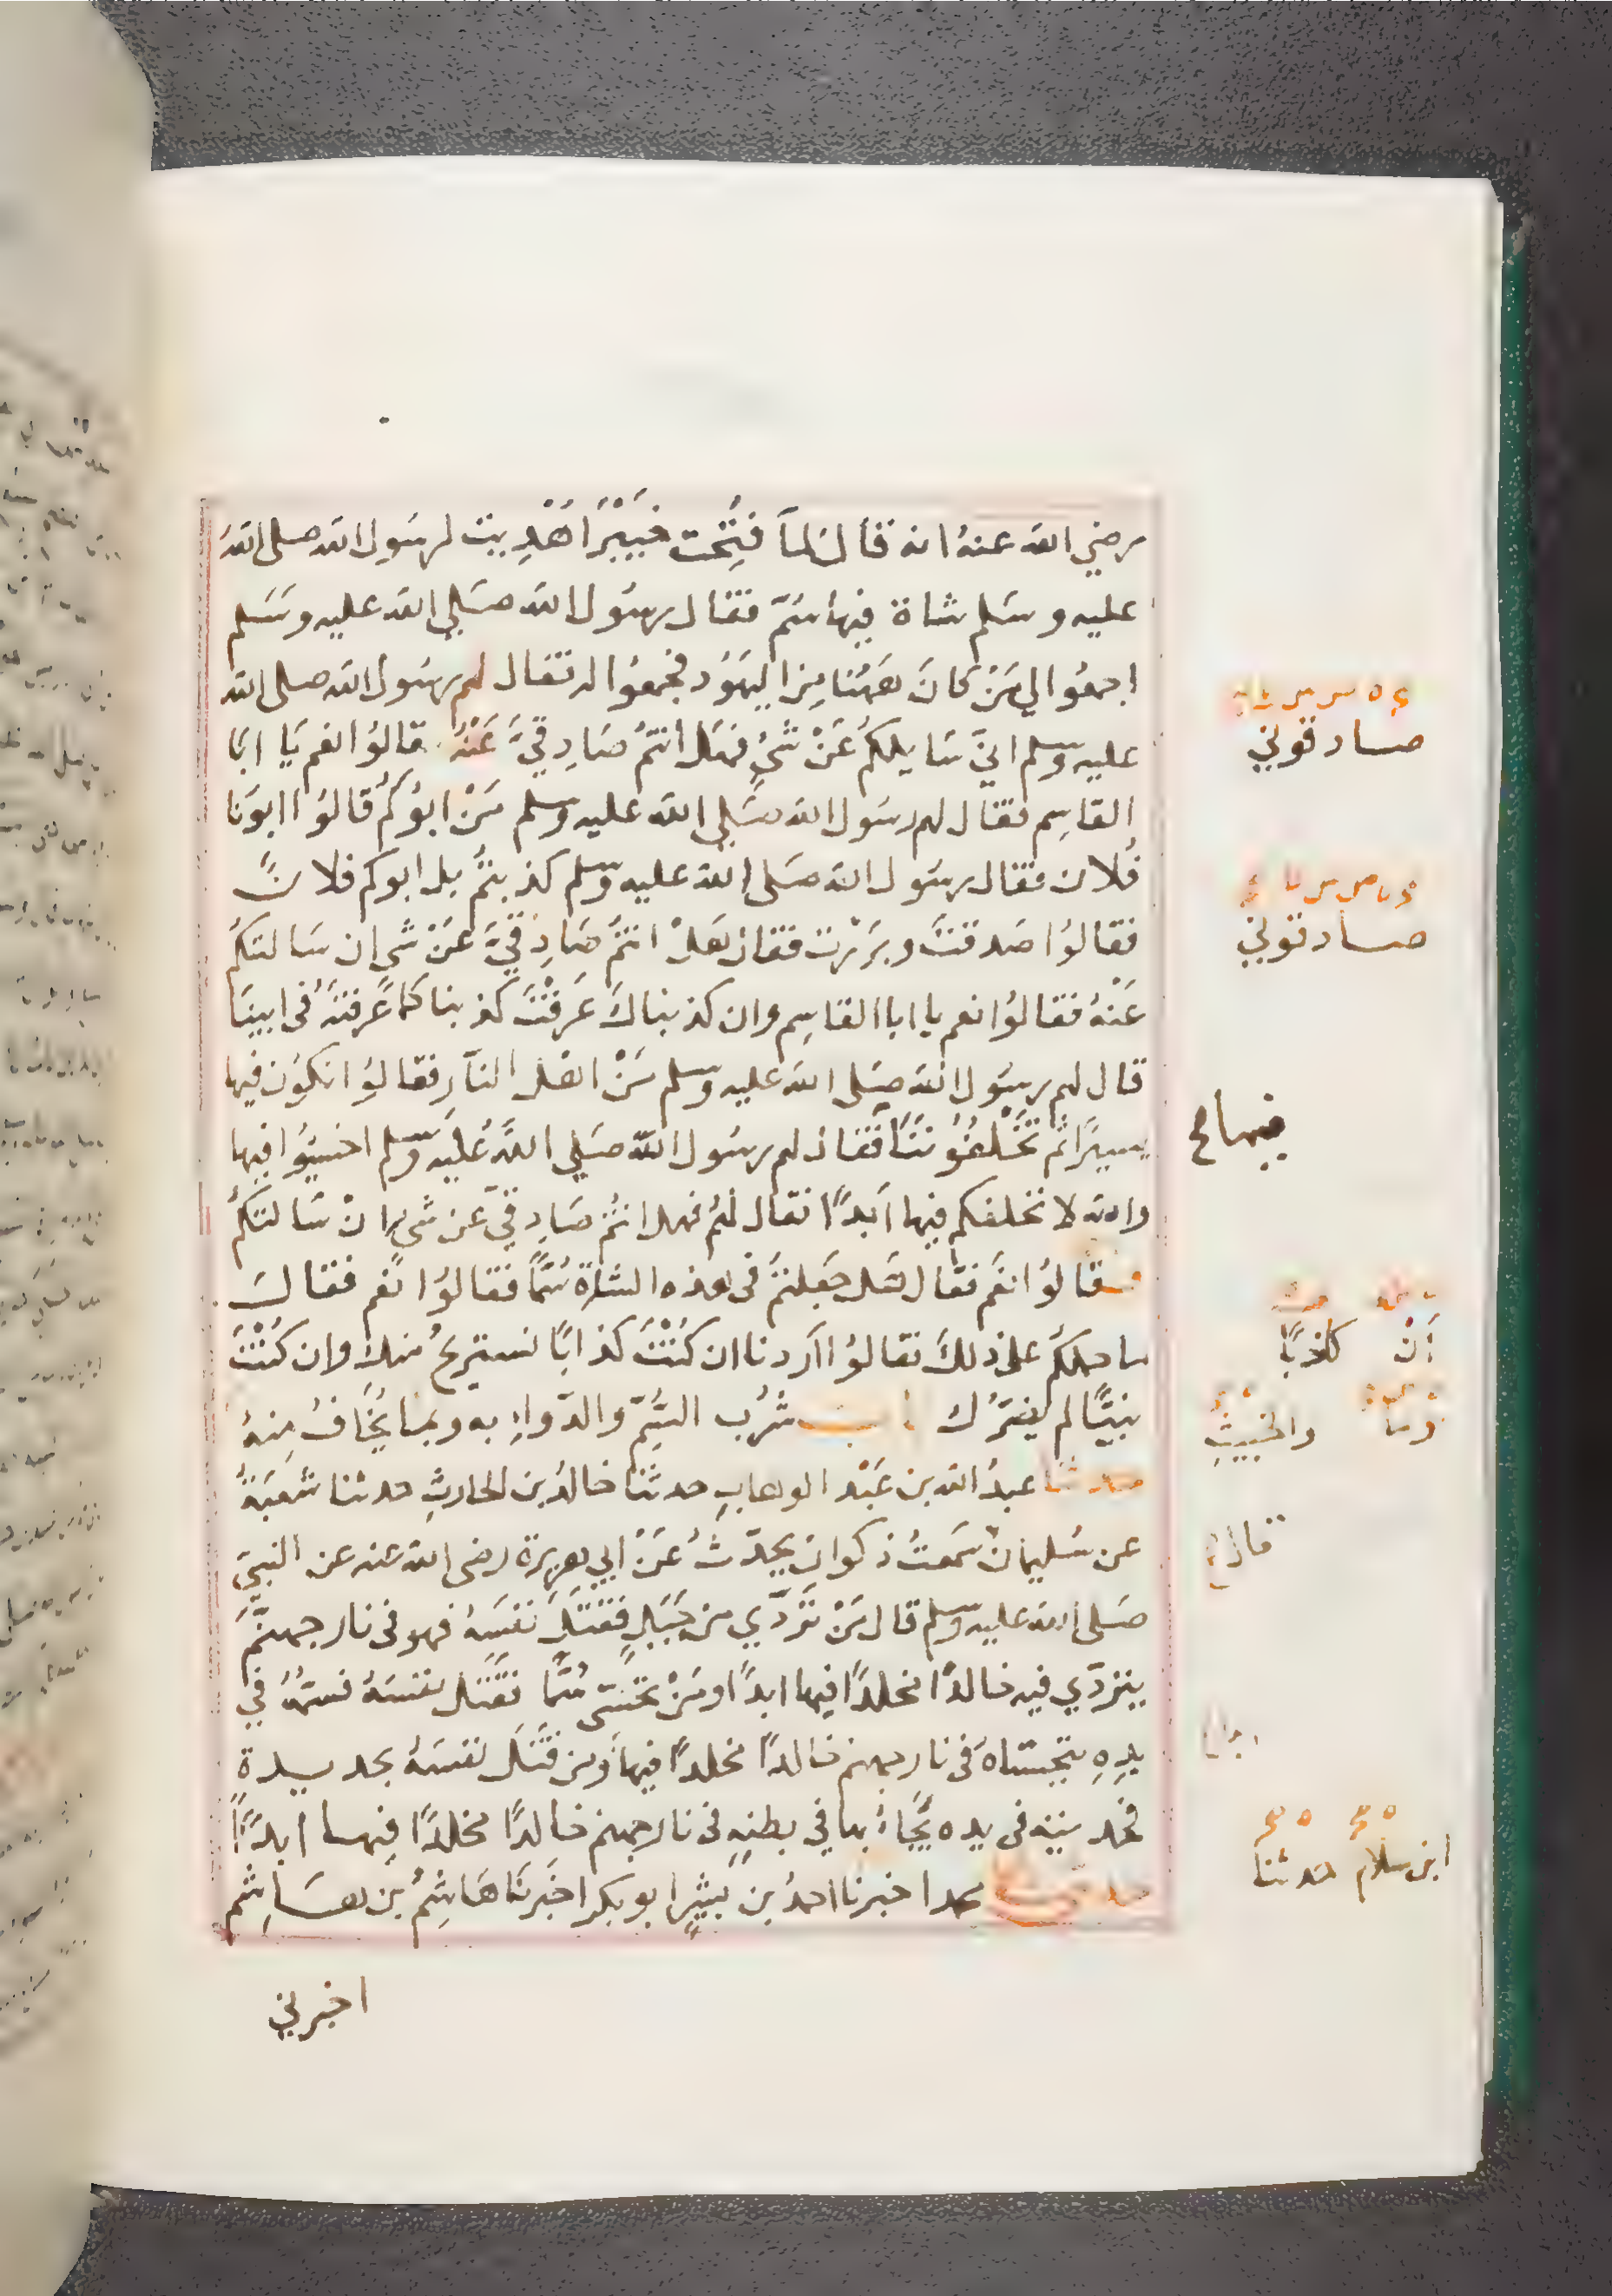 رضي الله عنهُ انه قال لمآ فُتِحَت خَيْبَرَ اُهْدِيت لرسُول الله صلى الله
عليه وسَلم شاة فيها سَمّ فقال رسُول الله صَلي الله عليه وسَلم
اجمعُوا لي مَنْ كانَ هَهُنا مِنَ اليهَوُد فجمعُوا له فقال لهم رسُول الله صلى الله
عليه وسلم انيّ سَايلكُم عَنْ شَيْءٍ فهَل انتمُ صَادِقِيَّ عَنْهُ قالوُا نعم يَا ابَا
القاسِم فقال لهم رسُول الله صَلي الله عليه وسلم مَنْ ابوُكم قالوُا ابوُنا
فُلان فقال رسُول الله صَلى الله عليه وسلم كذبتمُ بل ابوكم فلانٌ
فقالوُا صَدقتَ وبَرَرْت فقال هَلْ انتمُ صَادِقِيَّ عَنْ شي ان سَالتكُم
عَنْهُ فقالوُا نعم يا ابا القاسِم وان كذبناكَ عَرَفْتَ كذبنا كما عَرفتَهُ فى ابينَا
قال لهم رسُول الله صَلى الله عليه وسلم مَنْ اهْل النآر فقالوُا نكوُن فيها
يسيرًا ثم تَخْلفُوُنَنَا فَقال لهم رسُول الله صَلي اللَّه عَليه وسَلم اخسئوُا فيها
والله لا نخلفكم فيها ابَدًا فقال لهُم فهل انتمُ صَادِقِيَّ عَن شي ان سَالتكمُ
فقالوُا نعَم فقال هَل جَعَلتمُ فى هذه الشاة سُمًّا فقالوُا نعم فقالَ
ما حملكمُ على ذلكَ فقالوُا اَردنا ان كُنْتَ كذابًا نستريحُ منك وان كُنْتَ
نبيًّا لم يضرَّك باب شُرب السُّمّ والدّواءِ به وبمَا يُخَافُ مِنهُ
حدثنا عبدُ الله بن عَبْد الوهابِ حدثنَا خالدُ بن الحارثِ حدثنا شُعبَةُ
عن سُليمان سَمعتُ ذكوان يحدّثُ عَنْ ابي هريرة رضى الله عنه عن النبيَ
صَلى الله عليه وسلم قال مَنْ تَرَدّي من جَبَلٍ فَقَتَلَ نَفسَهُ فهو فى نار جهنّمَ
يَترَدّي فيه خالدًا مخلدًا فيها ابدًا ومَنْ تحَسّى سُمًّا فقَتَل نفسَهُ فسمُّهُ في
يدِهِ يتحسّاهُ فى نار جهنم خالدًا مخلدًا فيها ومن قَتَلَ نفسَهُ بحديدة
فحديدته فى يده يَجَأُ بها في بطنِهِ فى نار جهنم خالدًا مخلدًا فيها ابدًا
حدثنا محمد اخبرنا احمدُ بن بشيرٍ ابو بكر اخبَرنَا هَاشِمُ بن هَاشِم
اخبرني
صادقوني
صادقوني
فيها
اَنْ كاذبًا
وَمَا والخبيثِ
قال
ابن سلام حدثنا